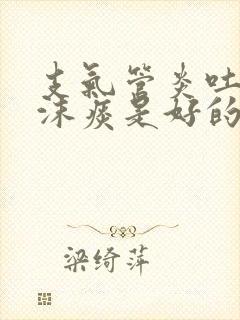 支氣管炎吐
沫痰是好的
梁绮萍